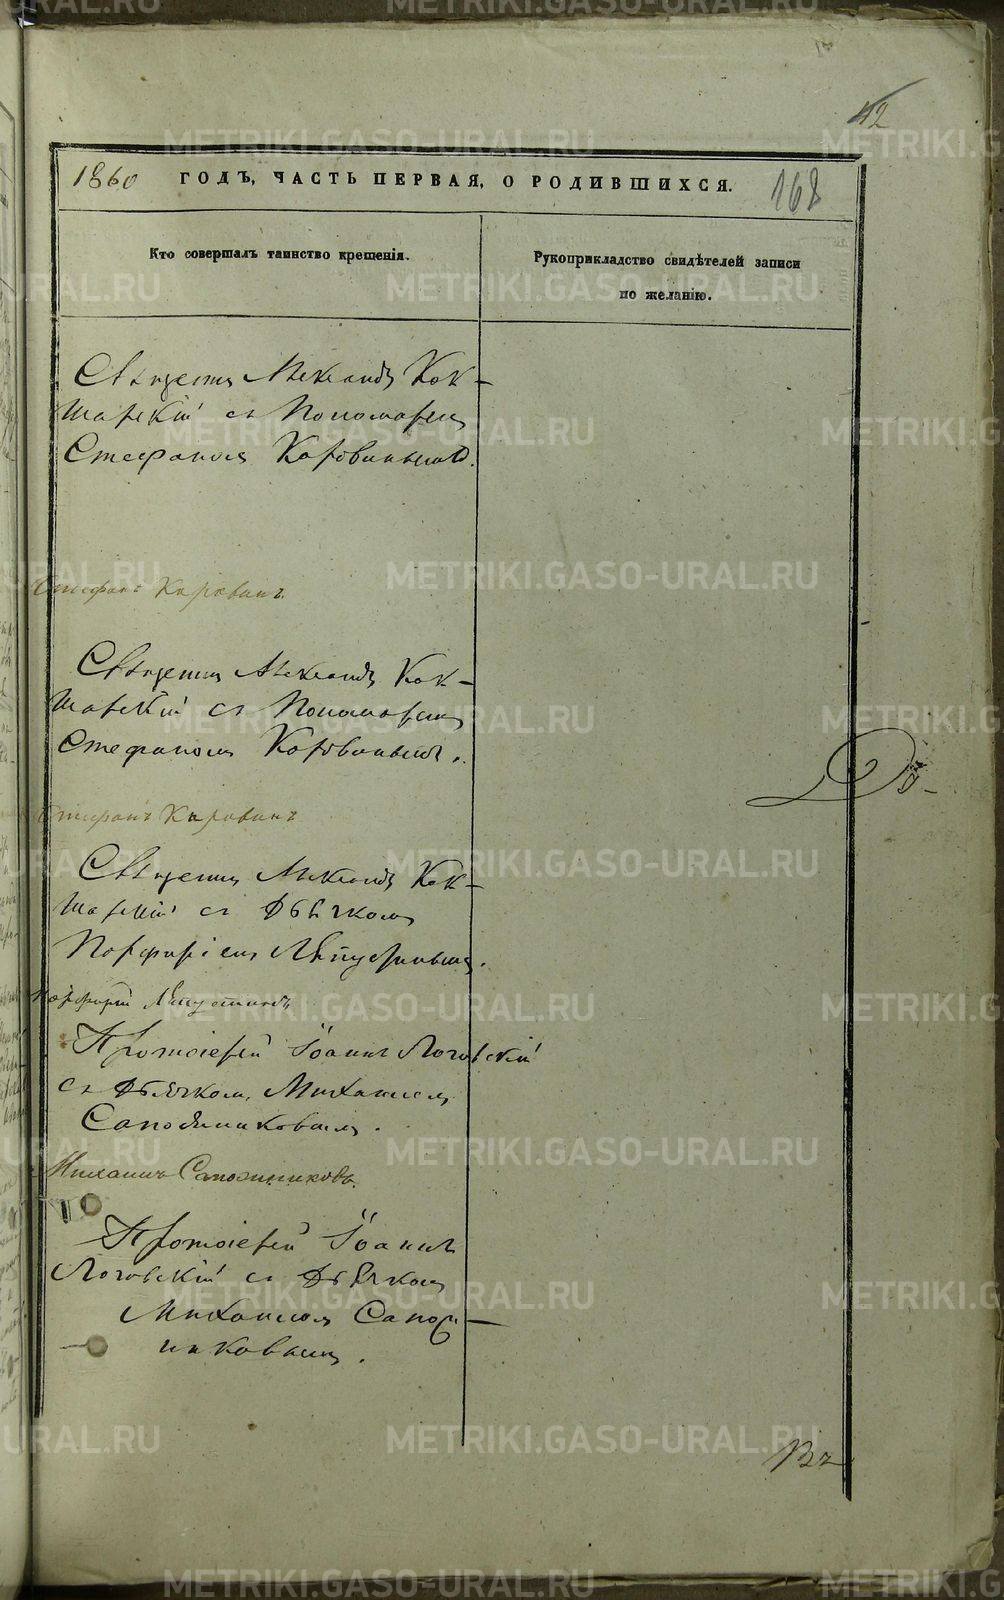 42
1860 ГОДЪ, ЧАСТЬ ПЕРВАЯ, О РОДИВШИХСЯ. 168
Кто совершалъ таинство крещенія.
Рукоприкладство свидѣтелей записи
по желанію.
Священникъ Александръ Кок-
шарскій съ Пономаремъ
Стефаномъ Коровинымъ.
Стефанъ Коровинъ
Священникъ Александръ Кок-
шарскій съ Пономаремъ
Стефаномъ Коровинымъ.
Стефанъ Коровинъ
Священникъ Александръ Кок-
шарскій съ Дьячкомъ
Порфиріемъ Ляпустинымъ.
Порфирій Ляпустинъ
Протоіерей Іоаннъ Логовскій
съ Дьячкомъ Михаиломъ
Сапожниковымъ.
Михаилъ Сапожниковъ.
Протоіерей Іоаннъ
Логовскій съ Дьячкомъ
Михаиломъ Сапож-
никовымъ.
METRIKI.GASO-URAL.RU